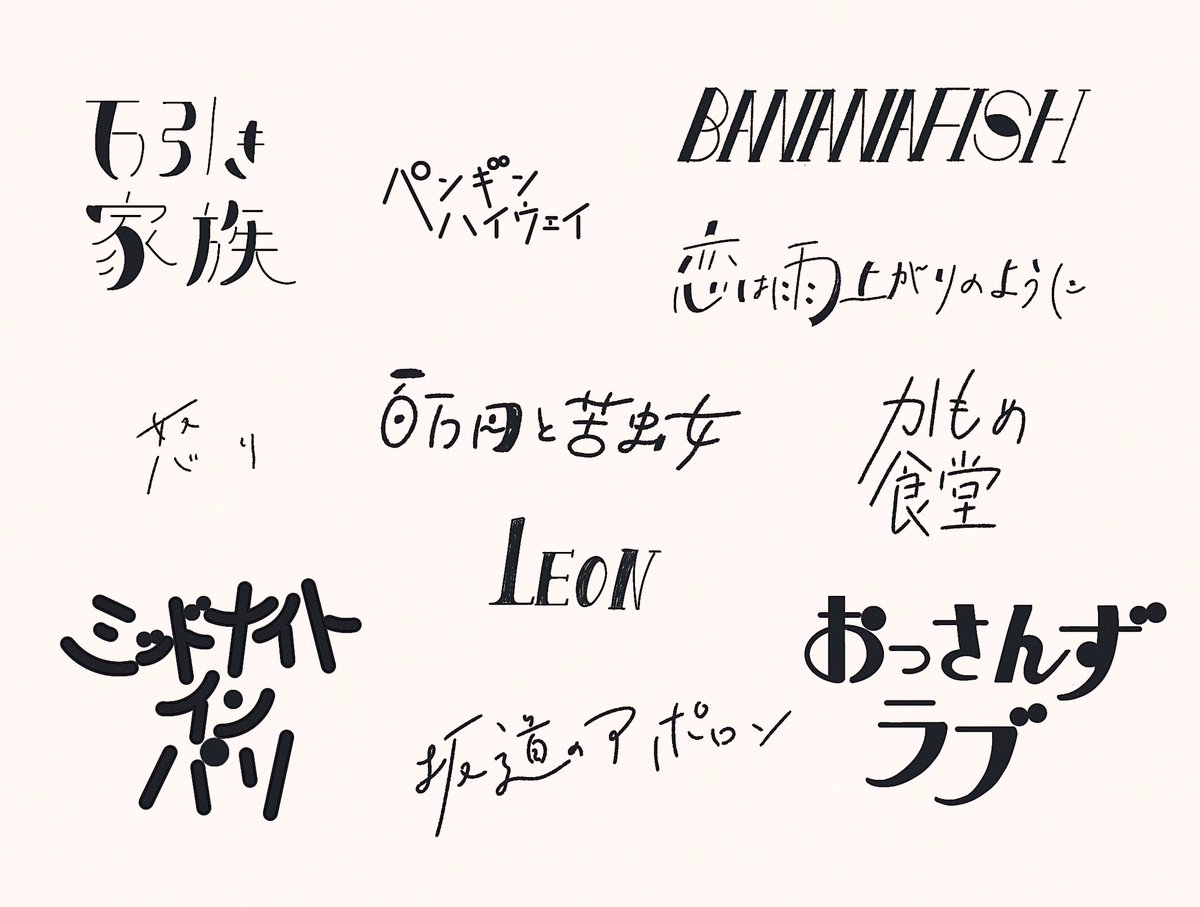 万引き
家族
ペンギン
ハイウェイ
BANANAFISH
恋は雨上がりのように
怒り
百万円と苦虫女
かもめ
食堂
LEON
ミッドナイト
イン
パリ
坂道のアポロン
おっさんず
ラブ